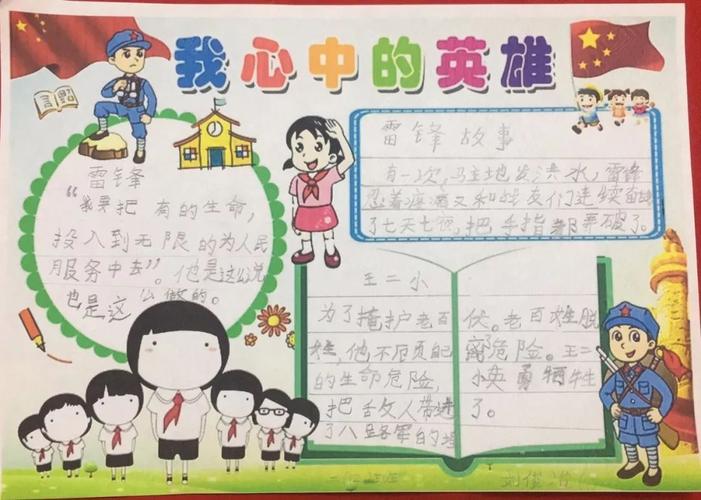 我心中的英雄
雷锋
"我要把 有的生命,
投入到无限的为人民
服务中去"。他是这么说
也是这么做的。
雷锋故事
有一次,马主地发洪水,雷锋
忍着疼痛又和战友们连续奋
了七天七夜,把手指都弄破了。
王二小
为了掩护老百
姓,他不顾自己
的生命危险,
把敌人带进
了八路军的埋
伏。老百姓脱
离了危险。王二
小英勇牺牲
了。